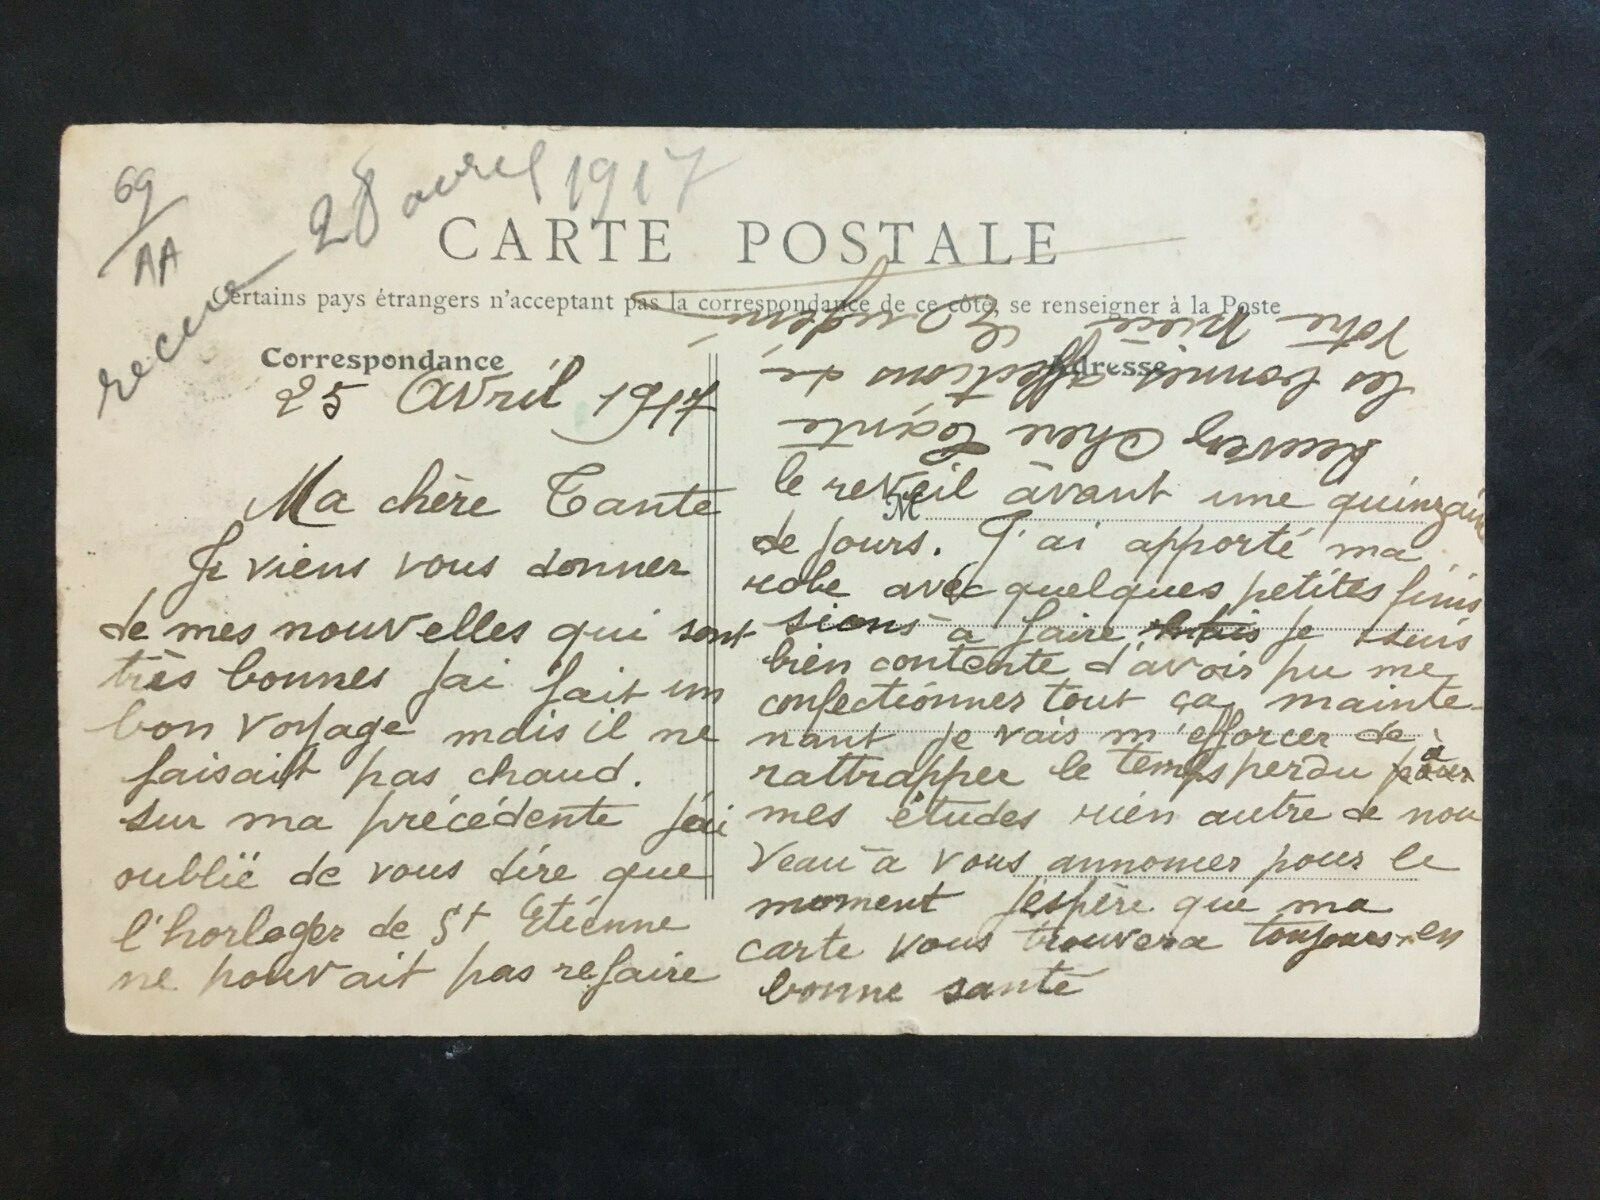 69
AA
recue 28 avril 1917
CARTE POSTALE
Certains pays étrangers n'acceptant pas la correspondance de ce côté, se renseigner à la Poste
Correspondance
Adresse
25 Avril 1917
Ma chère Tante
Je viens vous donner
de mes nouvelles qui sont
très bonnes j'ai fait un
bon voyage mais il ne
faisait pas chaud.
Sur ma précédente j'ai
oublié de vous dire que
l'horloger de St Etienne
ne pouvait pas refaire
le reveil avant une quinzaine
M
de jours. J'ai apporté ma
robe avec quelques petites finis
sions à faire mais je suis
bien contente d'avoir pu me
confectionner tout ça mainte-
nant je vais m'efforcer de
rattrapper le temps perdu pour à
mes études rien autre de nou
veau à vous annoncer pour le
moment j'espère que ma
carte vous trouvera toujours en
bonne santé
Recevez Chère Tante
les bonnes affections de
Votre nièce